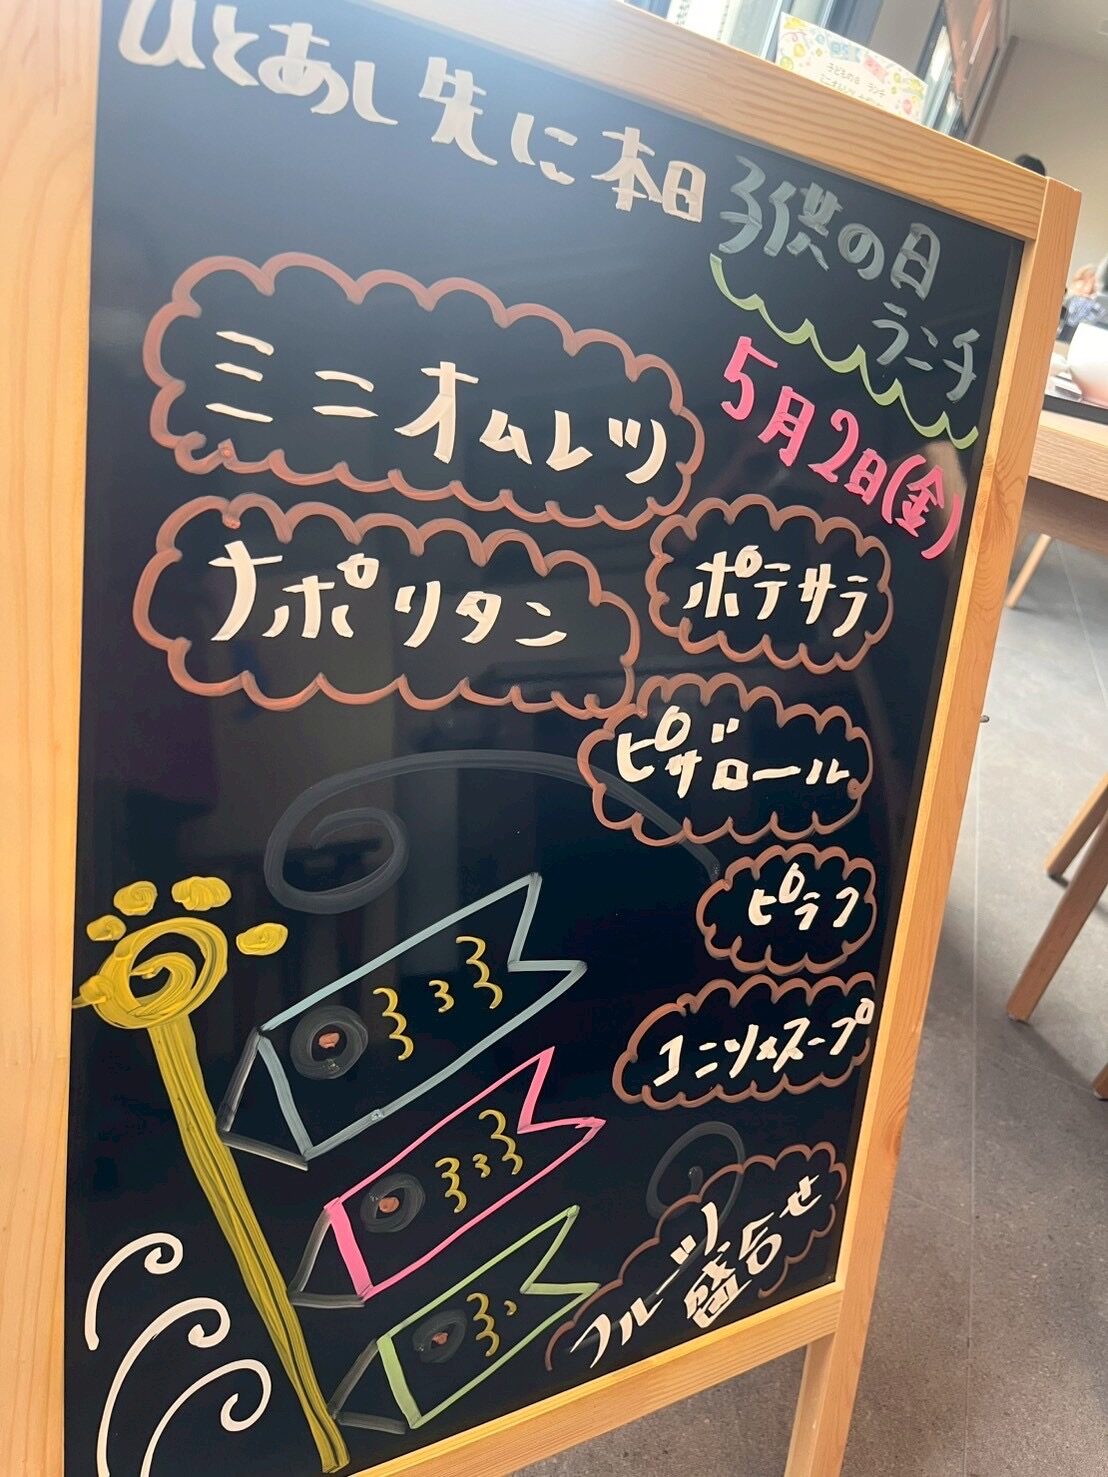 ひとあし先に本日子供の日
ランチ
5月2日(金)
ミニオムレツ
ナポリタン
ポテサラ
ピザロール
ピラフ
コンソメスープ
フルーツ
盛合せ
子どもの日 ランチ